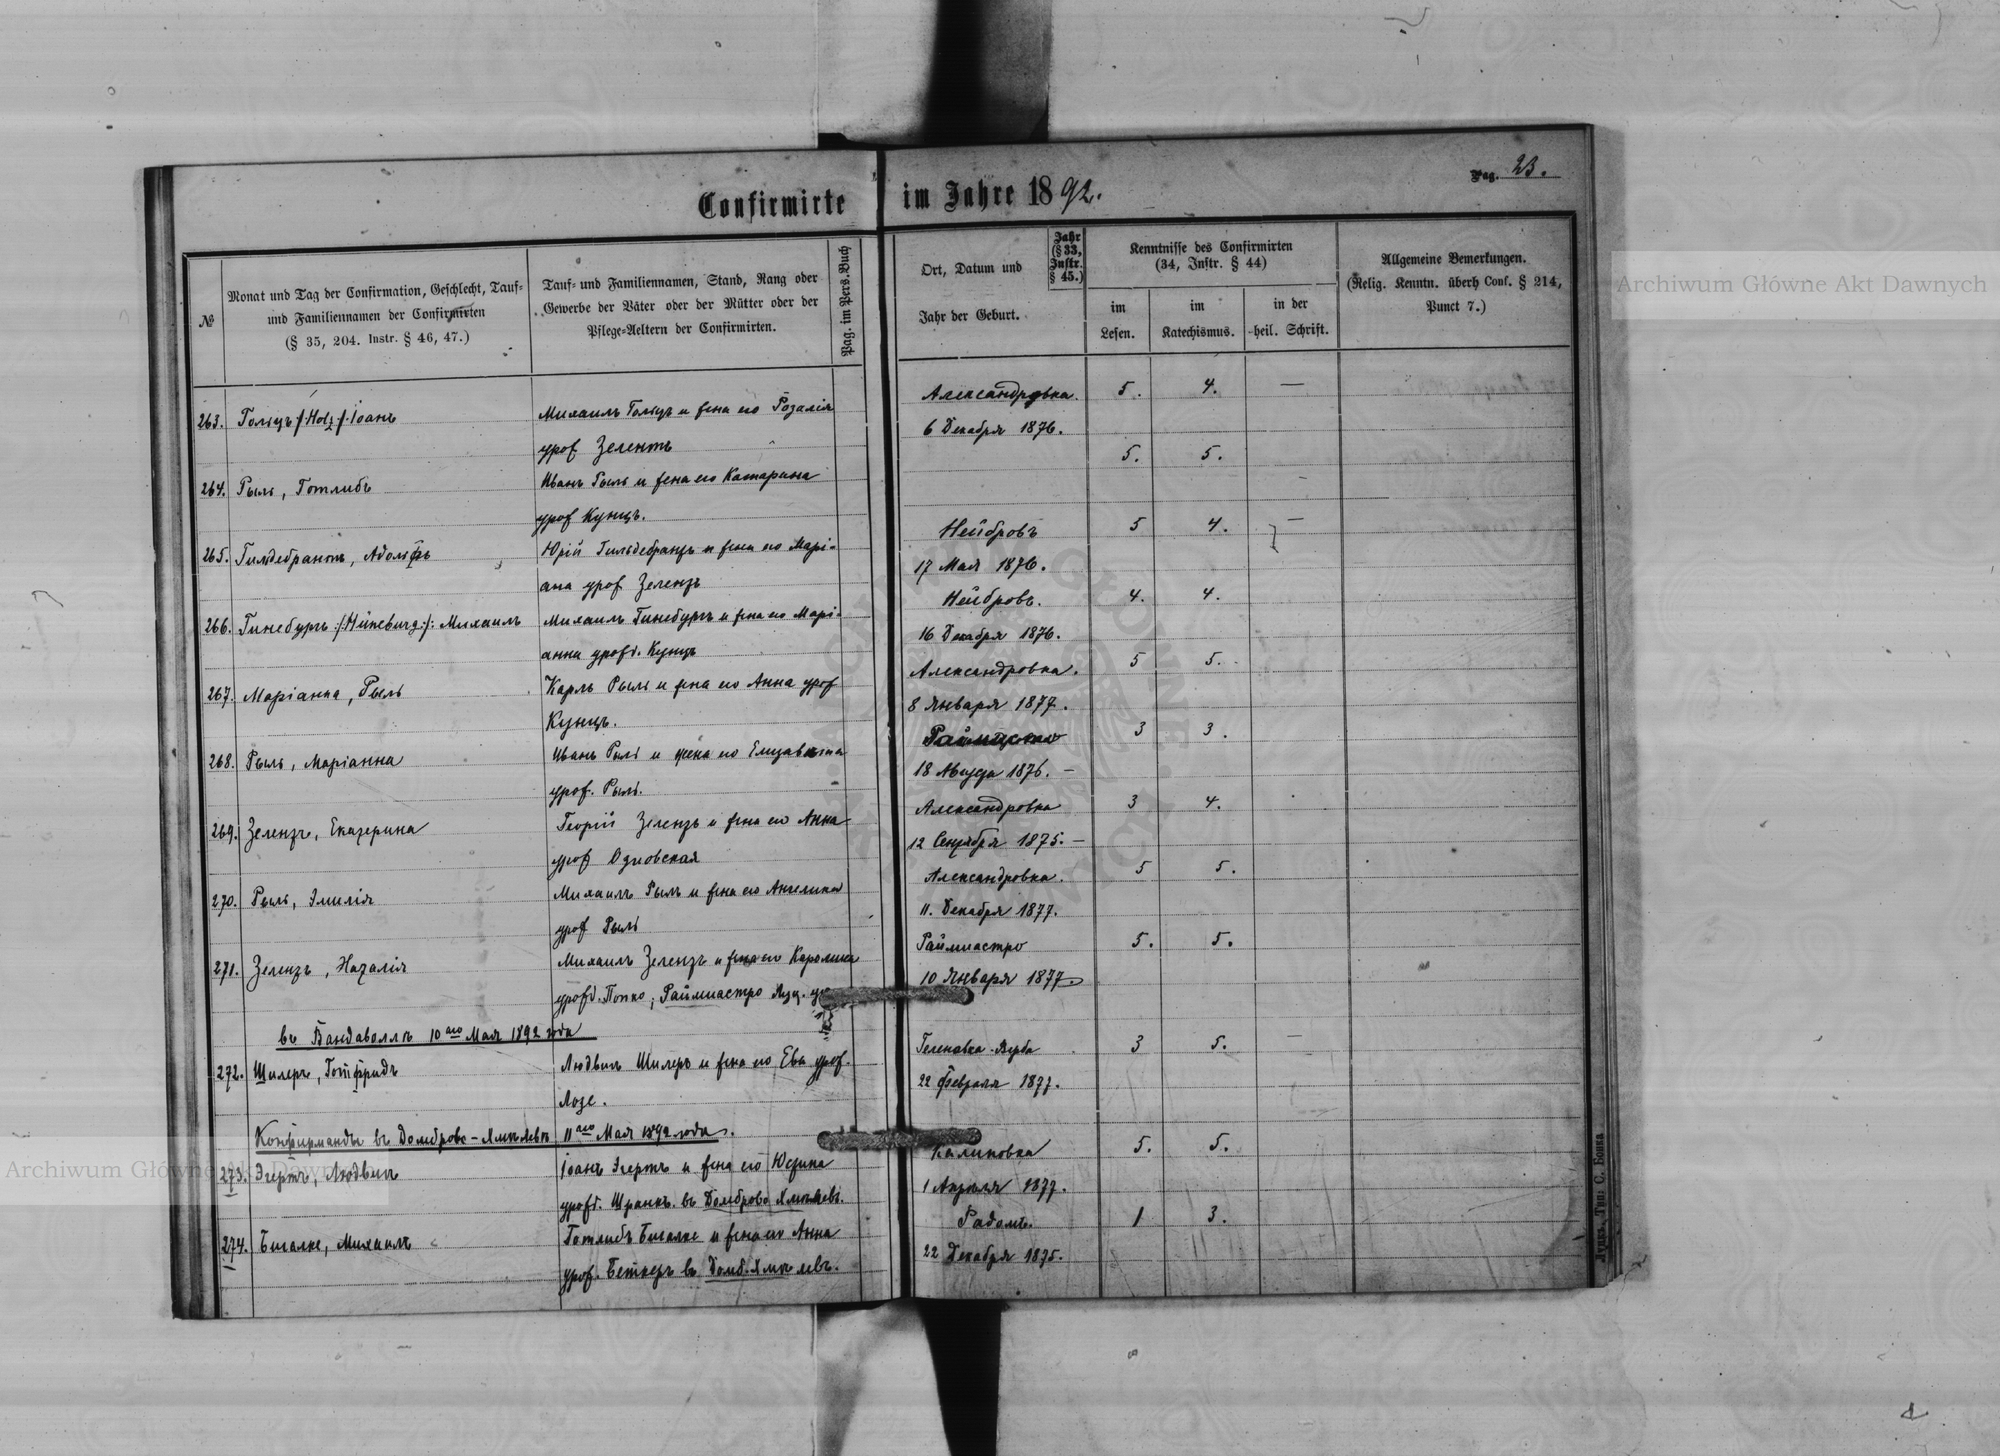 Confirmirte im Jahre 1892.
Pag. 23.
№
Monat und Tag der Confirmation, Geschlecht, Tauf-
und Familiennamen der Confirmirten
(§ 35, 204. Instr. § 46, 47.)
Tauf- und Familiennamen, Stand, Rang oder
Gewerbe der Väter oder der Mütter oder der
Pflege-Aeltern der Confirmirten.
Pag. im Pers.Buch
Ort, Datum und
Jahr der Geburt.
Jahr
(§ 33,
Instr.
§ 45.)
Kenntnisse des Confirmirten
(34, Instr. § 44)
im
Lesen.
im
Katechismus.
in der
heil. Schrift.
Allgemeine Bemerkungen.
(Relig. Kenntn. überh Conf. § 214,
Punct 7.)
263. Гольцъ /:Holz/: Іоанъ
Михаилъ Гольцъ и жена его Розалія
урож Зелентъ
Александровка. 5. 4. —
6 Декабря 1876.
264. Рыль, Готлибъ
Иванъ Рыль и жена его Катарина
урож Кунцъ.
5. 5.
265. Гильдебрантъ, Адольфъ
Юрій Гильдебранцъ и жена его Марі-
ана урож Зелензъ
Нейбровъ 5 4. —
17 Мая 1876.
266. Гинебургъ :/Hüneburg:/: Михаилъ
Михаилъ Гинебургъ и жена его Марі-
анна урожд. Кунцъ
Нейбровъ. 4. 4.
16 Декабря 1876.
267. Маріанна, Рыль
Карлъ Рыль и жена его Анна урож
Кунцъ.
Александровка. 5 5.
8 Января 1877.
268. Рыль, Маріанна
Иванъ Рыль и жена его Елизавета
урож. Рыль.
3 3.
18 Августа 1876. —
269. Зелензъ, Екатерина
Георгій Зелензъ и жена его Анна
урож
Александровка 3 4.
12 Сентября 1875. —
270. Рыль, Эмилія
Михаилъ Рыль и жена его Ангелика
урож Рыль
Александровка. 5 5.
11. Декабря 1877.
271. Зелензъ, Наталія
Михаилъ Зелензъ и жена его Каролина
урожд. Попко; Раймиастро Луц. у
Раймиастро 5. 5.
10 Января 1877.
въ Вандаволлѣ 10го Мая 1892 года
272. Шилеръ, Готфридъ
Людвигъ Шилеръ и жена его Ева урож.
Лозе.
Геленовка-Верба 3 5. —
22 Февраля 1877.
Конфирманды въ Домброво-Хмѣлевкѣ 11го Мая 1892 года.
273. Эгертъ, Людвигъ
Іоанъ Эгертъ и жена его Юстина
урожд. Шранкъ. въ Домброво Хмѣлевк.
Калиновка 5. 5.
1 Апрѣля 1877.
274. Бигалке, Михаилъ
Готлибъ Бигалке и жена его Анна
урож. Беткеръ въ Домб. Хмѣлевк.
Радомъ. 1 3.
22 Декабря 1875.
Луцкъ, Тип: С. Бонка
Archiwum Główne Akt Dawnych
Archiwum Główne Akt Dawnych